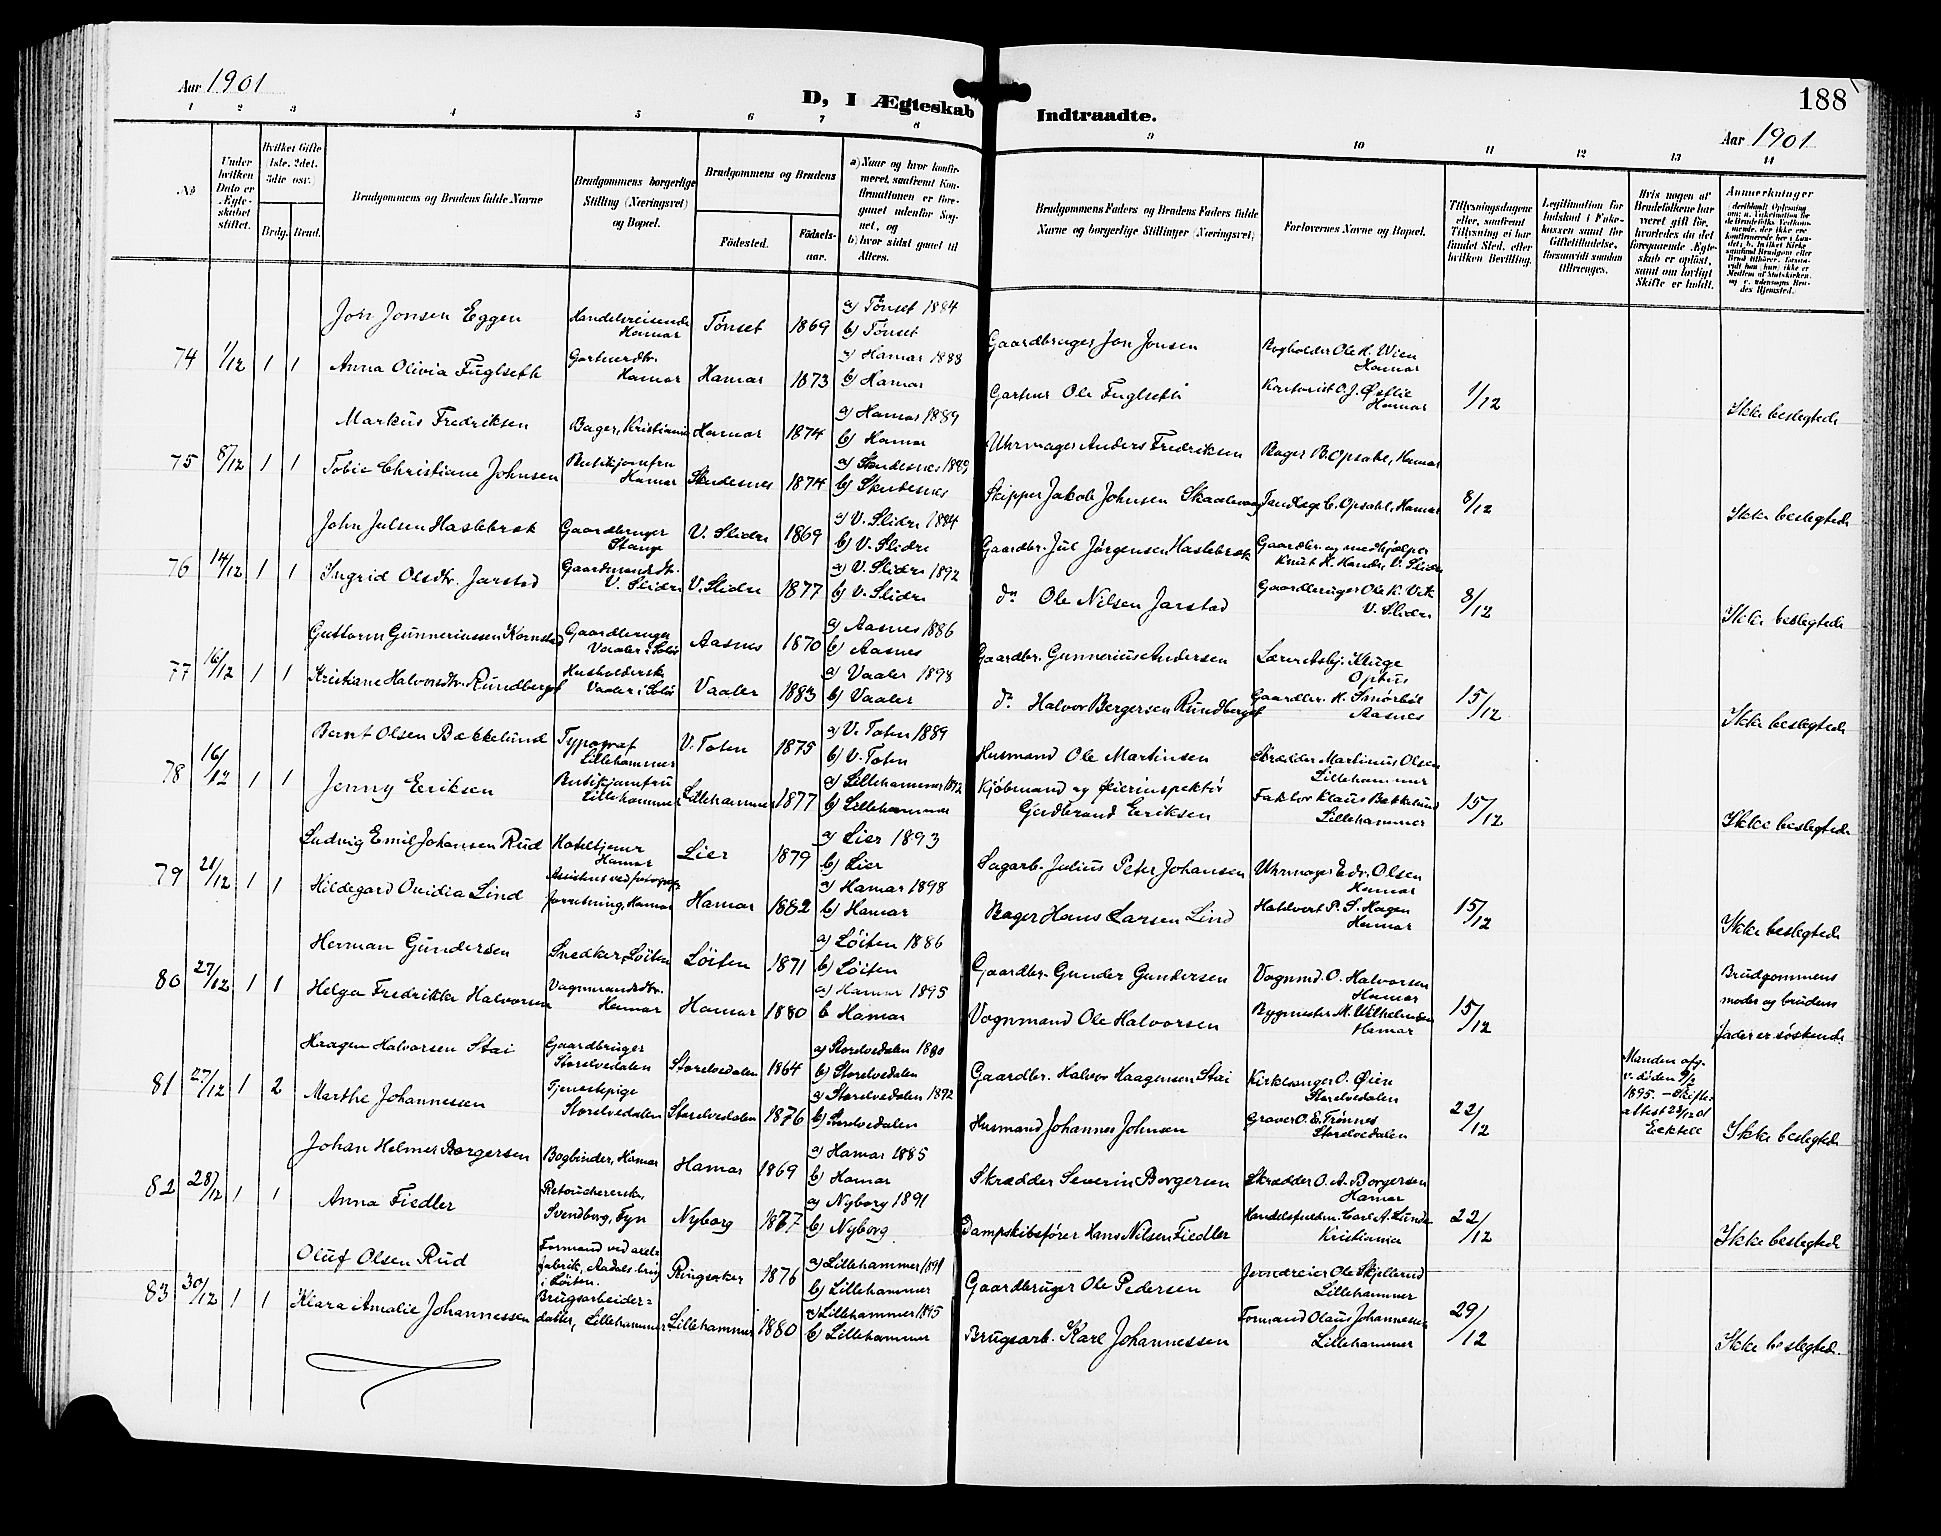 Aar 1901
D, I Ægteskab Indtraadte.
188
Aar 1901
1 2 3 4 5 6 7 8 9 10 11 12 13 14
No
Under hvilken Dato er Ægteskabet stiftet.
Hvilket Gifte (1ste. 2det. 3die osv.)
Brdg. Brud.
Brudgommens og Brudens fulde Navne
Brudgommens borgerlige Stilling (Næringsvei) og Bopæl.
Brudgommens og Brudens
Födested.
Födselsaar.
a) Naar og hvor konfirmeret, saafremt Konfirmationen er foregaaet udenfor Sognet, og
b) hvor sidst gaaet til Alters.
Brudgommens Faders og Brudens Faders fulde Navne og borgerlige Stillinger (Næringsvei)
Forlovernes Navne og Bopæl.
Tillysningsdagene eller, saafremt Tillysning ei har fundet Sted, efter hvilken Bevilling.
Legitimation for Indskud i Enkekassen samt for Giftetilladelse, forsaavidt saadan tiltrænges.
Hvis nogen af Brudefolkene har været gift før, hvorledes da det foregaaende Ægteskab er opløst, samt om lovligt Skifte er holdt.
Anmerkninger
74 1/12 1 1
Jon Jonsen Eggen Handelsreisende Hamar Tønset 1869 a) Tønset 1884 b) Tønset
Gaardbruger Jon Jonsen Bogholder Ole H. Wien Hamar
Anna Olivia Fuglseth Gartnerdtr. Hamar Hamar 1873 a) Hamar 1888 b) Hamar
Gartner Ole Fuglseth Kontorist O. J. Østlie Hamar 1/12 Ikke beslegtede
75 8/12 1 1
Markus Fredriksen Bager, Kristiania Hamar 1874 a) Hamar 1889 b) Hamar
Uhrmager Anders Fredriksen Bager B. Opsahl, Hamar
Tobie Christiane Johnsen Butikjomfru Hamar Skudesnes 1874 a) Skudesnes 1889 b) Skudesnes
Skipper Jakob Johnsen Skaalevaag Tandlæge C. Opsahl, Hamar 8/12 Ikke beslegtede
76 14/12 1 1
John Julsen Haslebrek Gaardbruger Stange V. Slidre 1869 a) V. Slidre 1884 b) V. Slidre
Gaardbr. Jul Jørgensen Haslebrek Gaardbr. og medhjælper Knut K. Hande, V. Slidre
Ingrid Olsdtr. Jarstad Gaardmandsdtr. V. Slidre V. Slidre 1877 a) V. Slidre 1892 b) V. Slidre
do Ole Nilsen Jarstad Gaardbruger Ole K. Vik V. Slidre 8/12 Ikke beslegtede
77 16/12 1 1
Guttorm Gunneriussen Kornstad Gaardbruger Vaaler i Solør Aasnes 1870 a) Aasnes 1886 b) Aasnes
Gaardbr. Gunnerius Andersen Lærer Asbj. Kluge
Kristiane Halvorsdtr. Rundberget Husholderske Vaaler i Solør Vaaler 1883 a) Vaaler 1898 b) Vaaler
do Halvor Bergersen Rundberget Gaardbr. K. Smørbøl Aasnes 15/12 Ikke beslegtede
78 16/12 1 1
Bernt Olsen Bækkelund Typograf Lillehammer V. Toten 1875 a) V. Toten 1889 b) V. Toten
Husmand Ole Martinsen Skrædder Martinus Olsen Lillehammer
Jenny Eriksen Butikjomfru Lillehammer Lillehammer 1877 a) Lillehammer 1892 b) Lillehammer
Kjøbmand og Øierinspektør Gudbrand Eriksen Faktor Klaus Bækkelund Lillehammer 15/12 Ikke beslegtede
79 21/12 1 1
Ludvig Emil Johansen Rud Hoteltjener Hamar Lier 1879 a) Lier 1893 b) Lier
Sagarb. Julius Peter Johansen Uhrmager Edv. Olsen Hamar
Hildegard Ovidia Lind Assistent ved fotograf forretning, Hamar Hamar 1882 a) Hamar 1898 b) Hamar
Bager Hans Larsen Lind Hotelvert P. S. Hagen Hamar 15/12 Ikke beslegtede
80 27/12 1 1
Herman Gundersen Snedker, Løiten Løiten 1871 a) Løiten 1886 b) Løiten
Gaardbr. Gunder Gundersen Vognmd. O. Halvorsen Hamar
Helga Fredrikke Halvorsen Vognmandsdtr. Hamar Hamar 1880 a) Hamar 1895 b) Hamar
Vognmand Ole Halvorsen Bygmester M. Wilhelmsen Hamar 15/12 Brudgommens moder og brudens fader er søskende.
81 27/12 1 2
Haagen Halvorsen Stai Gaardbruger Storelvedalen Storelvedalen 1864 a) Storelvedalen 1880 b) Storelvedalen
Gaardbr. Halvor Haagensen Stai Kirkesanger O. Øien Storelvedalen
Marthe Johannessen Tjenestepige Storelvedalen Storelvedalen 1876 a) Storelvedalen 1892 b) Storelvedalen
Husmand Johannes Johnsen Graver O. E. Trønnes Storelvedalen 22/12 Manden afg. v. døden 1895. – Skifteattest Ikke beslegtede
82 28/12 1 1
Johan Helmer Borgersen Bogbinder, Hamar Hamar 1869 a) Hamar 1885 b) Hamar
Skrædder Severin Borgersen Skrædder O. A. Borgersen Hamar
Anna Fiedler Retoucherersk. Svendborg, Fyn Nyborg 1877 a) Nyborg 1891 b) Nyborg
Dampskibsfører Hans Nilsen Fiedler Handelsfuldm. Carl A. Lunde Kristiania 22/12 Ikke beslegtede
83 30/12 1 1
Oluf Olsen Rud Formand ved fabrik, Aadalsbrug i Løiten. Ringsaker 1876 a) Lillehammer 1891 b) Lillehammer
Gaardbruger Ole Pedersen Ole Skjellerud Lillehammer
Klara Amalie Johannessen Brugsarbeiderdatter, Lillehammer Lillehammer 1880 a) Lillehammer 1895 b) Lillehammer
Brugsarb. Karl Johannessen Formand Olaus Johannessen Lillehammer 29/12 Ikke beslegtede.